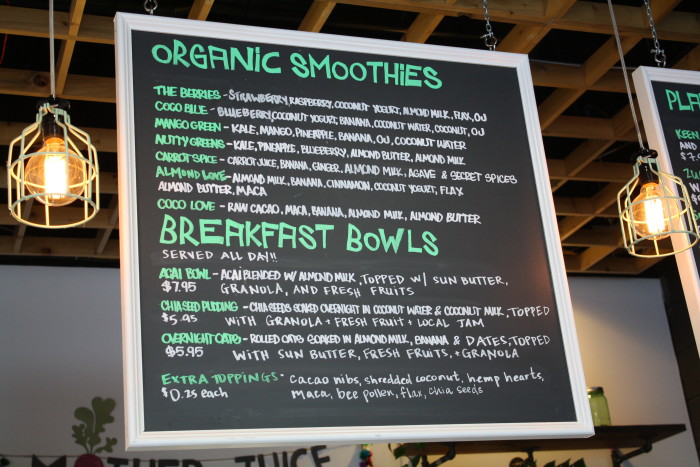 ORGANIC SMOOTHIES
THE BERRIES - STRAWBERRY, RASPBERRY, COCONUT YOGURT, ALMOND MILK, FLAX, OJ
COCO BLUE - BLUEBERRY, COCONUT YOGURT, BANANA, COCONUT WATER, COCONUT, OJ
MANGO GREEN - KALE, MANGO, PINEAPPLE, BANANA, OJ, COCONUT WATER
NUTTY GREENS - KALE, PINEAPPLE, BLUEBERRY, ALMOND BUTTER, ALMOND MILK
CARROT SPICE - CARROT JUICE, BANANA, GINGER, ALMOND MILK, AGAVE & SECRET SPICES
ALMOND LOVE - ALMOND MILK, BANANA, CINNAMON, COCONUT YOGURT, FLAX
ALMOND BUTTER, MACA
COCO LOVE - RAW CACAO, MACA, BANANA, ALMOND MILK, ALMOND BUTTER
BREAKFAST BOWLS
SERVED ALL DAY!!
ACAI BOWL - ACAI BLENDED W/ ALMOND MILK, TOPPED W/ SUN BUTTER,
$7.95 GRANOLA, AND FRESH FRUITS
CHIA SEED PUDDING - CHIA SEEDS SOAKED OVERNIGHT IN COCONUT WATER & COCONUT MILK, TOPPED
$5.95 WITH GRANOLA + FRESH FRUIT + LOCAL JAM
OVERNIGHT OATS - ROLLED OATS SOAKED IN ALMOND MILK, BANANA & DATES, TOPPED
$5.95 WITH SUN BUTTER, FRESH FRUITS, + GRANOLA
EXTRA TOPPINGS - cacao nibs, shredded coconut, hemp hearts,
$0.25 each maca, bee pollen, flax, chia seeds
PLA
KEEN
AND
$7.
MOTHER JUICE